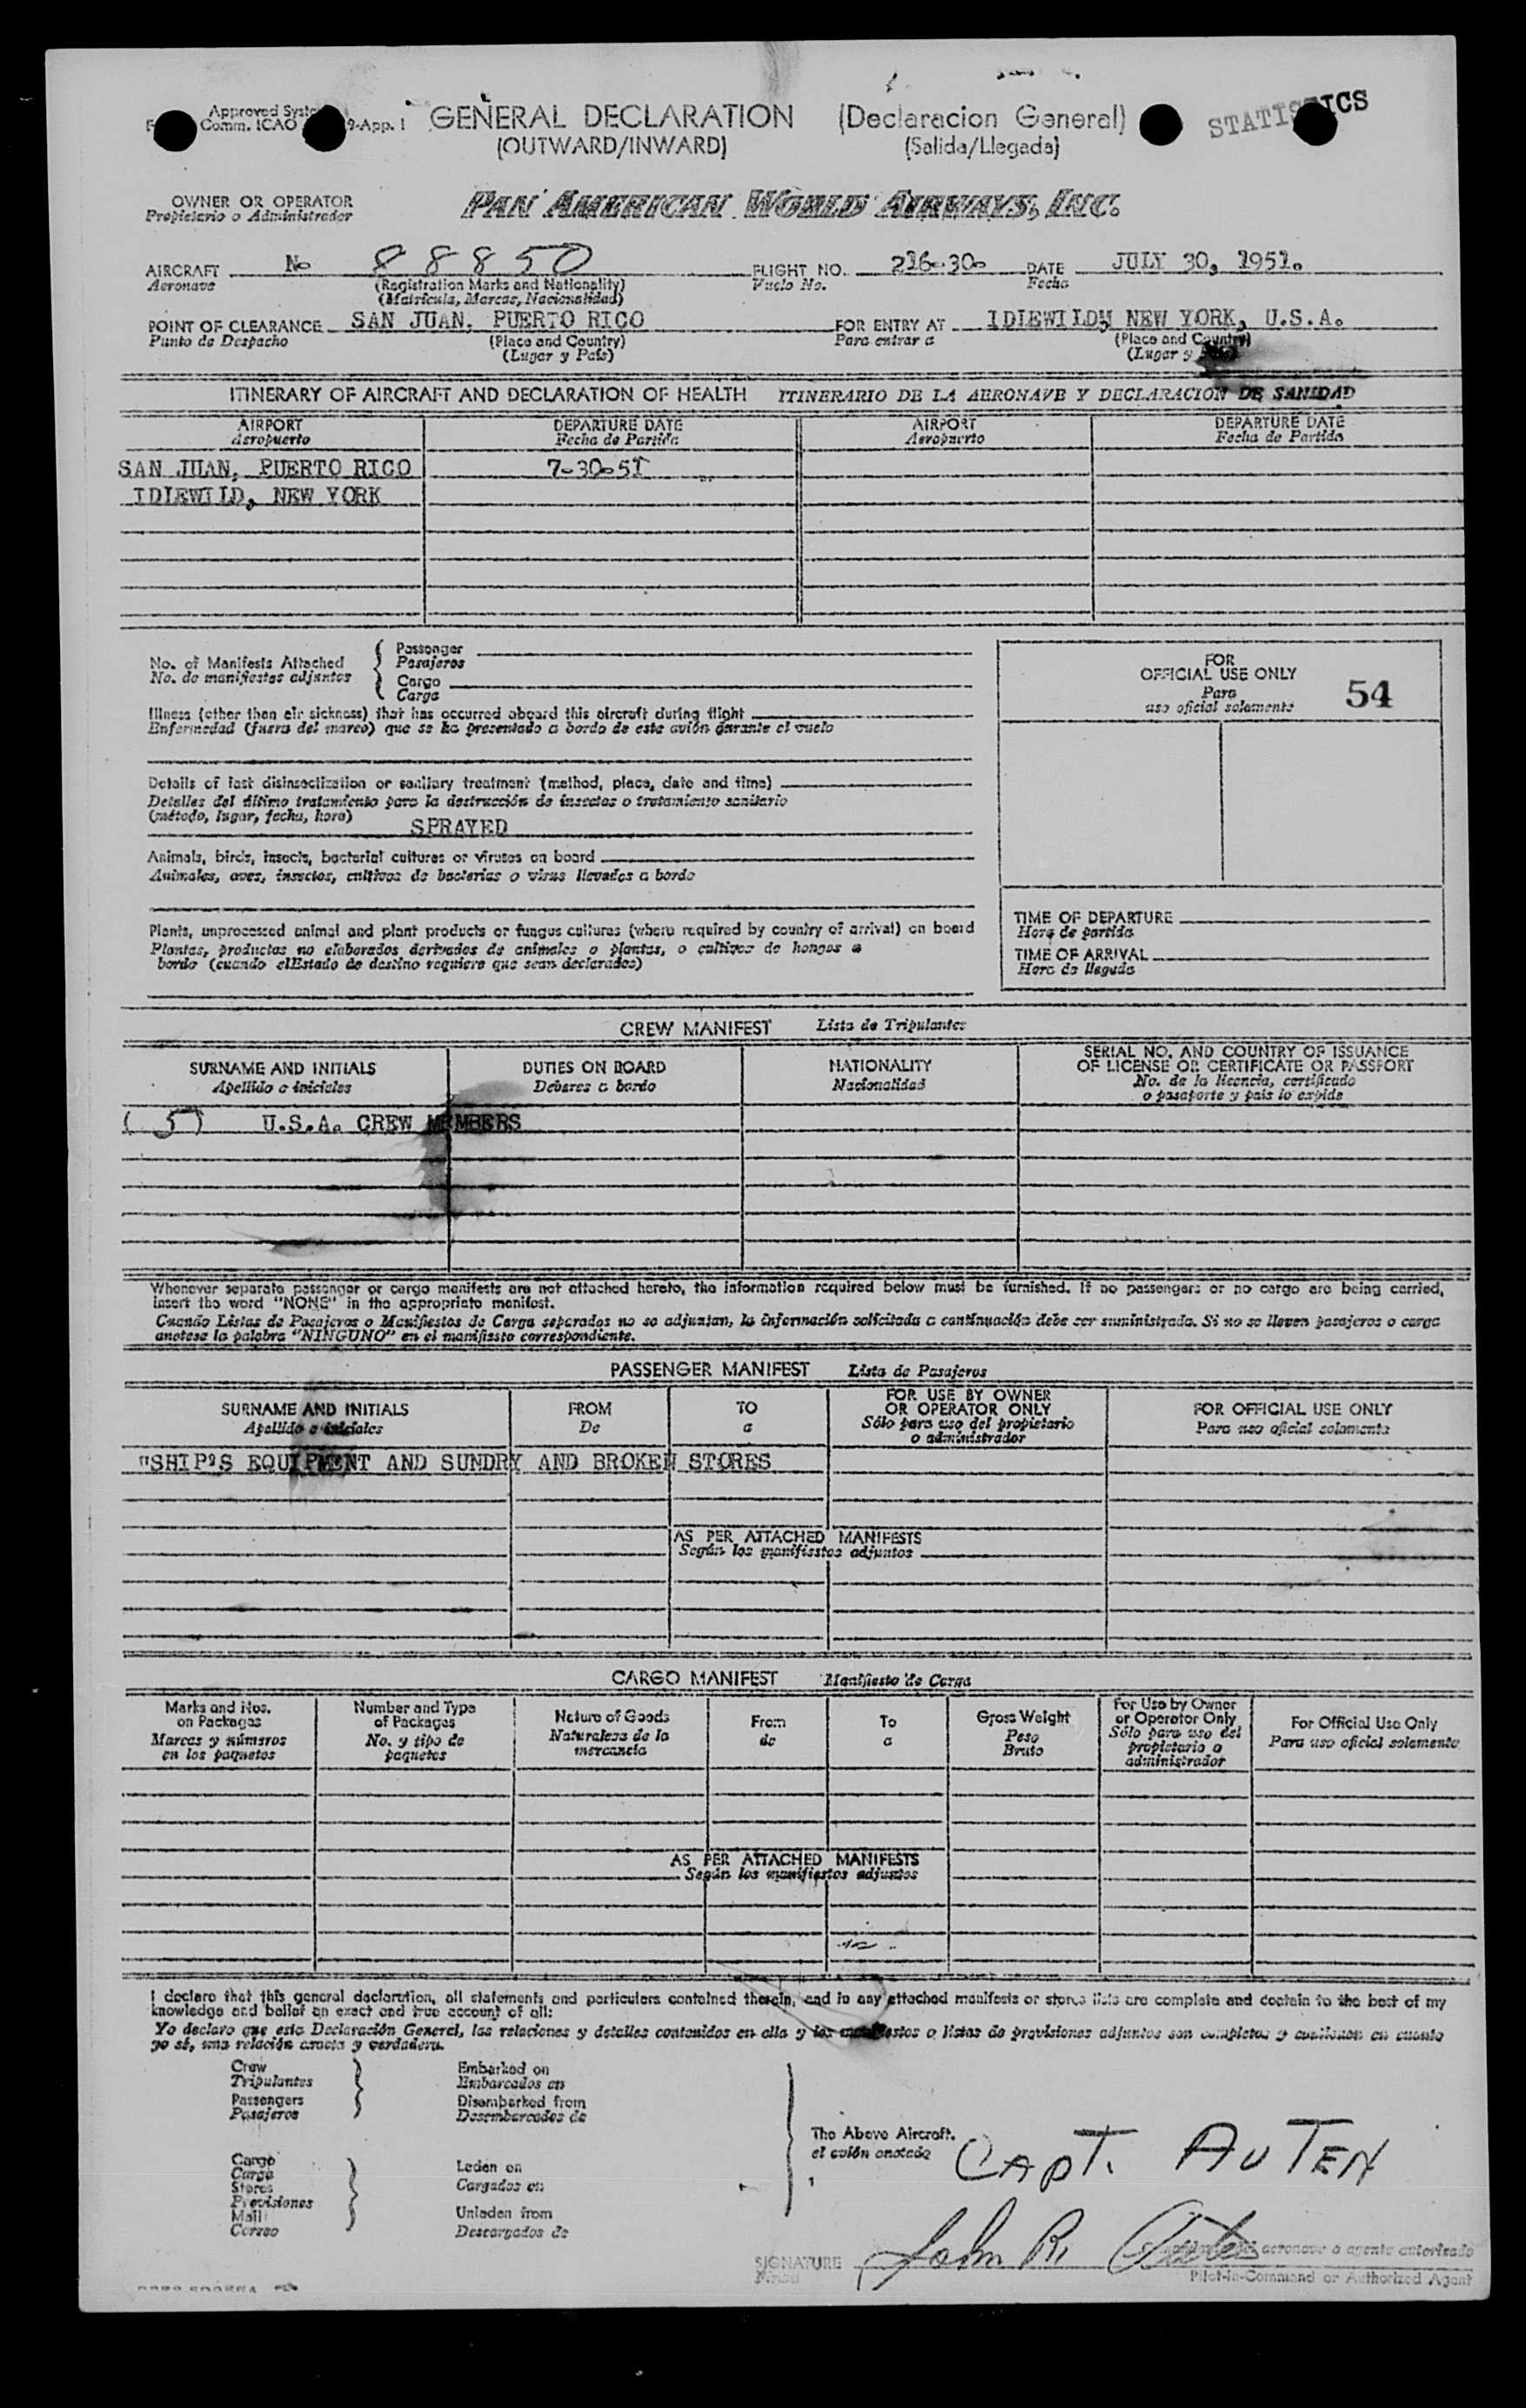 Approved
Comm. ICAO 9-App. 1
GENERAL DECLARATION (Declaracion General)
STATISTICS
(OUTWARD/INWARD) (Salida/Llegada)
OWNER OR OPERATOR
Propietario o Administrador
PAN AMERICAN WORLD AIRWAYS, INC.
AIRCRAFT No 88850 FLIGHT NO. 216-30. DATE JULY 30, 1951.
Aeronave (Registration Marks and Nationality) Vuelo No. Fecha
(Matricula, Marcas, Nacionalidad)
POINT OF CLEARANCE SAN JUAN, PUERTO RICO FOR ENTRY AT IDLEWILD, NEW YORK, U.S.A.
Punto de Despacho (Place and Country) Para entrar a (Place and Country)
(Lugar y País) (Lugar y
ITINERARY OF AIRCRAFT AND DECLARATION OF HEALTH ITINERARIO DE LA AERONAVE Y DECLARACION DE SANIDAD
AIRPORT DEPARTURE DATE AIRPORT DEPARTURE DATE
Aeropuerto Fecha de Partida Aeropuerto Fecha de Partida
SAN JUAN, PUERTO RICO 7-30-51
IDLEWILD, NEW YORK
No. of Manifests Attached { Passenger
No. de manifiestos adjuntos Pasajeros
Cargo
Carga
FOR
OFFICIAL USE ONLY
Para
uso oficial solamente
54
Illness (other than air sickness) that has occurred aboard this aircraft during flight
Enfermedad (fuera del mareo) que se ha presentado a bordo de este avión durante el vuelo
Details of last disinsectization or sanitary treatment (method, place, date and time)
Detalles del último tratamiento para la destrucción de insectos o tratamiento sanitario
(método, lugar, fecha, hora)
SPRAYED
Animals, birds, insects, bacterial cultures or viruses on board
Animales, aves, insectos, cultivos de bacterias o virus llevados a bordo
Plants, unprocessed animal and plant products or fungus cultures (where required by country of arrival) on board
Plantas, productos no elaborados derivados de animales o plantas, o cultivos de hongos a
bordo (cuando elEstado de destino requiere que sean declarados)
TIME OF DEPARTURE
Hora de partida
TIME OF ARRIVAL
Hora de llegada
CREW MANIFEST Lista de Tripulantes
SURNAME AND INITIALS DUTIES ON BOARD NATIONALITY SERIAL NO. AND COUNTRY OF ISSUANCE
OF LICENSE OR CERTIFICATE OR PASSPORT
Apellido e iniciales Deberes a bordo Nacionalidad No. de la licencia, certificado
o pasaporte y país lo expide
( 5 ) U.S.A. CREW MEMBERS
Whenever separate passenger or cargo manifests are not attached hereto, the information required below must be furnished. If no passengers or no cargo are being carried,
insert the word "NONE" in the appropriate manifest.
Cuando Listas de Pasajeros o Manifiestos de Carga separados no se adjuntan, la información solicitada a continuación debe ser suministrada. Si no se llevan pasajeros o carga
anotese la palabra "NINGUNO" en el manifiesto correspondiente.
PASSENGER MANIFEST Lista de Pasajeros
SURNAME AND INITIALS FROM TO FOR USE BY OWNER
OR OPERATOR ONLY FOR OFFICIAL USE ONLY
Apellido e iniciales De a Sólo para uso del propietario
o administrador Para uso oficial solamente
"SHIP'S EQUIPMENT AND SUNDRY AND BROKEN STORES
AS PER ATTACHED MANIFESTS
Según los manifiestos adjuntos
CARGO MANIFEST Manifiesto de Carga
Marks and Nos.
on Packages
Marcas y números
en los paquetes
Number and Type
of Packages
No. y tipo de
paquetes
Nature of Goods
Naturaleza de la
mercancía
From
de
To
a
Gross Weight
Peso
Bruto
For Use by Owner
or Operator Only
Sólo para uso del
propietario o
administrador
For Official Use Only
Para uso oficial solamente
AS PER ATTACHED MANIFESTS
Según los manifiestos adjuntos
I declare that this general declaration, all statements and particulars contained therein, and in any attached manifests or stores lists are complete and contain to the best of my
knowledge and belief an exact and true account of all:
Yo declaro que esta Declaración General, las relaciones y detalles contenidos en ella y los manifiestos o listas de provisiones adjuntos son completos y contienen en cuanto
yo sé, una relación exacta y verdadera.
Crew
Tripulantes
Passengers
Pasajeros
Embarked on
Embarcados en
Disembarked from
Desembarcados de
Cargo
Carga
Stores
Provisiones
Mail
Correo
Laden on
Cargados en
Unladen from
Descargados de
The Above Aircraft.
el avión anotado
CAPT. AUTEN
SIGNATURE John R. Auten
Firma
aeronave o agente autorizado
Pilot-in-Command or Authorized Agent